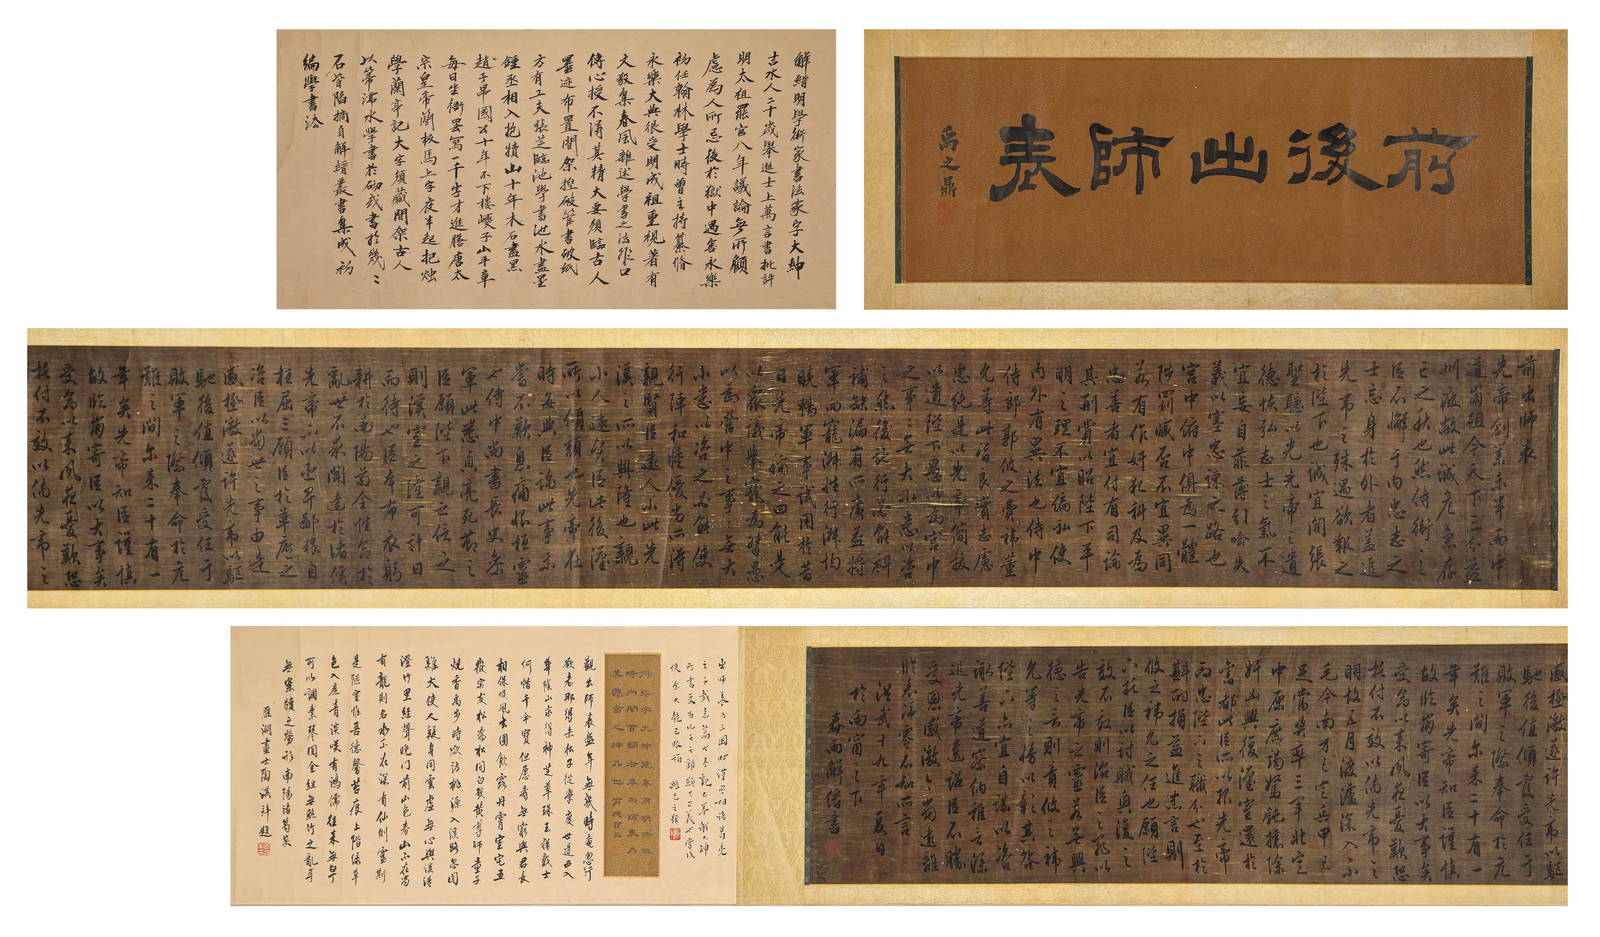 前後出師表
禹之鼎
解縉明學術家書法家字大紳
吉水人二十歲舉進士上萬言書批評
明太祖罷官八年議論無所顧
慮為人所忌後於獄中遇害永樂
初任翰林學士時曾主持纂脩
永樂大典很受明成祖重視著有
文毅集春風雜述學書之法非口
傳心授不得其精大要須臨古人
墨迹布置間架捏破管書破紙
方有工夫張芝臨池學書池水盡墨
鍾丞相入抱犢山十年木石盡黑
趙子昂國公十年不下樓巙子山平章
每日坐衙罷寫一千字才進膳唐太
宗皇帝簡板馬上字夜半起把燭
學蘭亭記大字須藏間架古人
以箒濡水學書於砌或書於几几
石皆陷摘自解縉叢書集成初
編學書法
前出師表
先帝創業未半而中
道崩殂今天下三分益
州疲敝此誠危急存
亡之秋也然侍衛之
臣不懈于內忠志之
士忘身於外者蓋追
先帝之殊遇欲報之
於陛下也誠宜開張
聖聽以光先帝之遺
德恢弘志士之氣不
宜妄自菲薄引喻失
義以塞忠諫之路也
宮中府中俱為一體
陟罰臧否不宜異同
若有作奸犯科及為
忠善者宜付有司論
其刑賞以昭陛下平
明之理不宜偏私使
內外有異法也侍中
侍郎郭攸之費禕董
允等此皆良實志慮
忠純是以先帝簡拔
以遺陛下愚以為宮中
之事事無大小悉以咨
之然後施行必能裨
補缺漏有所廣益將
軍向寵性行淑均
曉暢軍事試用於昔
日先帝稱之曰能是
以眾議舉寵為督愚
以為營中之事事無大
小悉以咨之必能使
行陣和睦優劣得所
親賢臣遠小人此先
漢之所以興隆也親
小人遠賢臣此後漢
所以傾頹也先帝在
時每與臣論此事未
嘗不歎息痛恨桓靈
也侍中尚書長史參
軍此悉貞亮死節之
臣願陛下親之信之
則漢室之隆可計日
而待也臣本布衣躬
耕於南陽苟全性命於
亂世不求聞達於諸侯
先帝不以臣卑鄙猥自
枉屈三顧臣於草廬之
咨臣以當世之事由是
感激遂許先帝以驅
馳後值傾覆受任于
敗軍之際奉命於危
難之間爾來二十有一
年矣先帝知臣謹慎
故臨崩寄臣以大事矣
受命以來夙夜憂歎恐
託付不效以傷先帝之
感激遂許先帝以驅
馳後值傾覆受任于
敗軍之際奉命於危
難之間爾來二十有一
年矣先帝知臣謹慎
故臨崩寄臣以大事矣
受命以來夙夜憂歎恐
託付不效以傷先帝之
明故五月渡瀘深入不
毛今南方已定兵甲已
足當獎率三軍北定
中原庶竭駑鈍攘除
奸凶興復漢室還於
舊都此臣所以報先帝
而忠陛下之職分也至於
斟酌損益進盡忠言則
攸之禕允之任也願陛
下託臣以討賊興復之
效不效則治臣之罪以
告先帝之靈若無興
德之言則責攸之禕
允等之慢以彰其咎
陛下亦宜自謀以咨
諏善道察納雅言深
追先帝遺詔臣不勝
受恩感激今當遠離
臨表涕零不知所言
洪武十九年夏日
於南窗之下
春雨解縉書
出師表乃三國時漢丞相諸葛亮
觀出師表盛年每幾時奄忽行
欲老那得赤松子從學度世道西入
華陰山求得神芝草珠玉猶戴土
何惜千金寶但愿壽無窮與君長
相保
焚香萬步時欲訪桃源入溪路忽聞
雞犬使人疑身同雲虛無心與溪清
澄竹里經聲晚門前山色春山不在高
有龍則名水不在深有仙則靈斯
是陋室惟吾德馨苔痕上階綠草
色入簾青談笑有鴻儒往來無白丁
可以調素琴閱金經無絲竹之亂耳
無案牘之勞形南陽諸葛矣
雁湖畫士陶淇并題